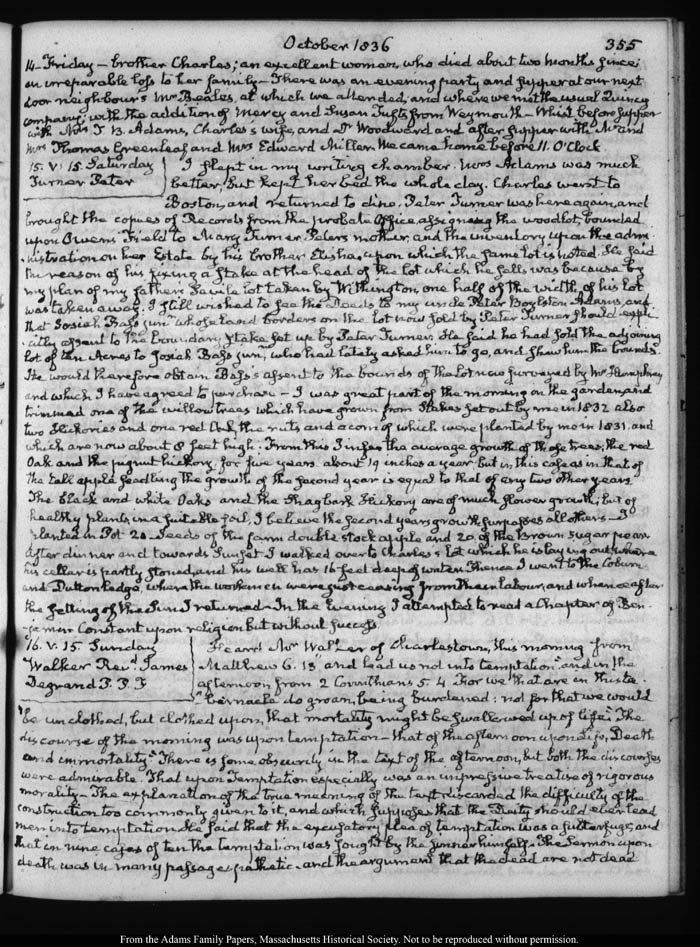 October 1836
355
14. Friday — brother Charles; an excellent woman, who died about two months since;
an irreparable loss to her family — There was an evening party and supper at our next
door neighbour's Mr Beales, at which we attended, and where we met the usual Quincy
company; with the addition of Mercy and Susan Tufts from Weymouth — Whist before supper
with Mrs T. B. Adams, Charles's wife, and Woodward and after supper with Mr and
Mrs Thomas Greenleaf and Mrs Edward Miller. We came home before 11. O'Clock.
15. V. 15. Saturday
Turner Peter
I slept in my writing chamber. Mrs Adams was much
better, but kept her bed the whole day. Charles went to
Boston, and returned to dine. Peter Turner was here again, and
brought the copies of Records from the probate Office, assigning the woodlot, bounded
upon Owen's Field to Mary Turner Peter's mother, and the inventory upon the admi
nistration on her Estate by his brother Elisha, upon which the same lot is noted. He said
the reason of his fixing a stake at the head of the lot which he sells was because by
my plan of my father's Savile lot taken by Withington, one half of the width of his lot
was taken away. I still wished to see the Deeds to my uncle Peter Boylston Adams, and
that Josiah Bass junr whose land borders on the lot now sold by Peter Turner should expli
citly assent to the boundary stake set up by Peter Turner. He said he had sold the adjoining
lot of ten Acres to Josiah Bass junr, who had lately asked him to go, and shew him the bounds.
He would therefore obtain Bass's assent to the bounds of the Lot now surveyed by Mr Humphrey
and which I have agreed to purchase — I was great part of the morning in the garden, and
trimmed one of the willow trees which have grown from Stakes set out by me in 1832 also
two Hickories and one red Oak, the nuts and acorn of which were planted by me in 1831, and
which are now about 8 feet high. From this I infer the average growth of those trees, the red
Oak and the pignut hickory for five years about 19 inches a year but in this case as in that of
the tall apple seedling the growth of the second year is equal to that of any two other years.
The Black and white Oaks and the Shagbark Hickory are of much slower growth, but of
healthy plants, in a suitable soil, I believe the second years growth surpasses all others — I
planted in Pot 20. Seeds of the farm double stock apple and 20 of the Brown sugar pear.
After dinner and towards Sunset I walked over to Charles's lot which he is laying out, where
his cellar is partly stoned, and his well has 16 feet deep of water. Thence I went to the Coburn
and Dutton ledge, where the workmen were just ceasing from their labour, and whence after
the setting of the Sun I returned. In the Evening I attempted to read a Chapter of Ben
jamin Constant upon religion but without success
16. V. 15. Sunday
Walker Revd. James
Degrand P. P. F
Heard Mr Walker of Charlestown, this morning from
Matthew 6. 13 "and lead us not into temptation" and in the
afternoon from 2 Corinthians 5. 4 For we that are in this ta
"bernacle do groan, being burdened: not for that we would
"be unclothed, but clothed upon, that mortality might be swallowed up of life." The
discourse of the morning was upon temptation — that of the afternoon upon Life, Death
and immortality. There is some obscurity in the text of the afternoon, but both the discourses
were admirable. That upon Temptation especially was an impressive treatise of rigorous
morality — The explanation of the true meaning of the text discarded the difficulty of the
construction too commonly given to it, and which supposes that the Deity should ever lead
men into temptation. He said that the excusatory plea of temptation was a subterfuge, and
that in nine cases of ten the temptation was sought by the sinner himself. The Sermon upon
death was in many passages pathetic — and the argument that the dead are not dead
From the Adams Family Papers, Massachusetts Historical Society. Not to be reproduced without permission.